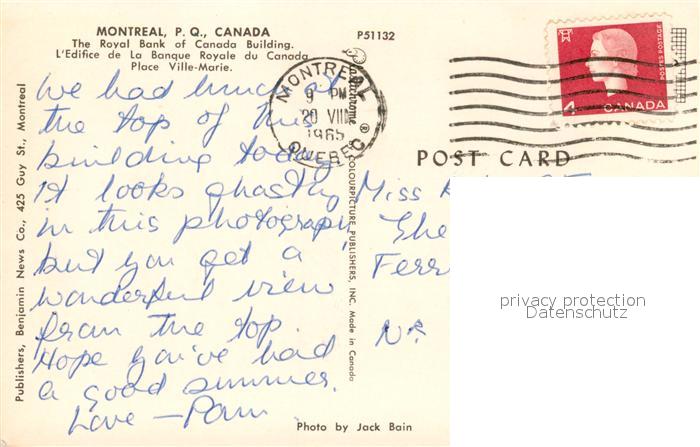 MONTREAL, P. Q., CANADA
The Royal Bank of Canada Building.
L'Edifice de La Banque Royale du Canada
Place Ville-Marie.
P51132
We had lunch at
the top of this
building today
It looks ghastly
in this photograph,
but you get a
wonderful view
from the top.
Hope you've had
a good summer.
Love — Pam
Photo by Jack Bain
Publishers, Benjamin News Co., 425 Guy St., Montreal
COLOURPICTURE PUBLISHERS, INC. Made in Canada
MONTREAL
9 PM
20 VIII
1965
QUEBEC
4 CANADA
POSTES POSTAGE
POST CARD
Miss
She
Ferr
privacy protection
Datenschutz